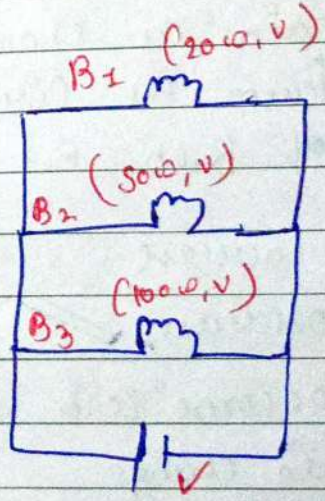 B1 (20ω, V)
B2 (50ω, V)
B3 (100ω, V)
V